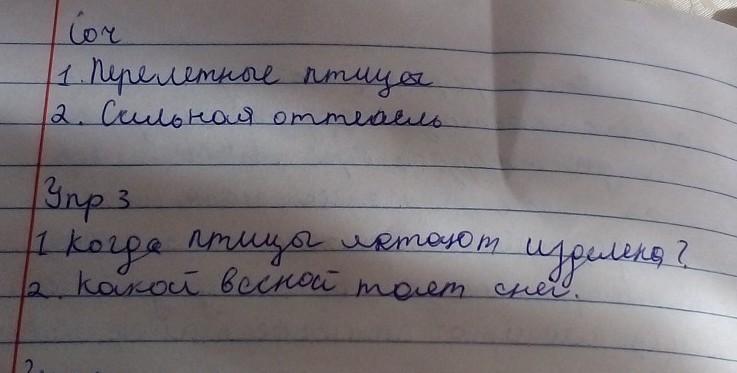 Соч
1. Перелетные птицы
2. Сильная оттепель
Упр 3
1 Когда птицы летают издалека?
2. Какой весной тает снег.
2.